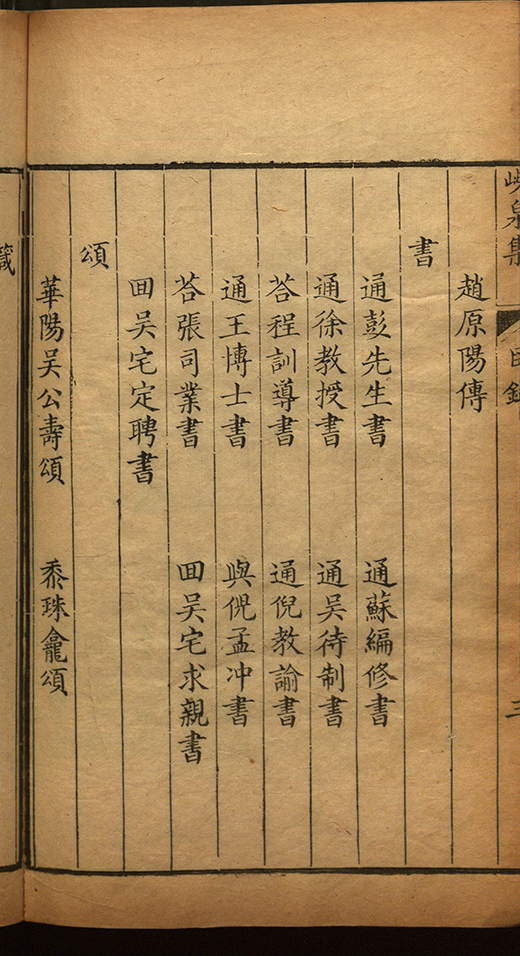 峴泉集
目錄
三
趙原陽傳
書
通彭先生書　通蘇編修書
通徐教授書　通吴待制書
荅程訓導書　通倪教諭書
通王博士書　與倪孟冲書
荅張司業書　囬吴宅求親書
囬吴宅定聘書
頌
華陽吴公壽頌　黍珠龕頌
箴